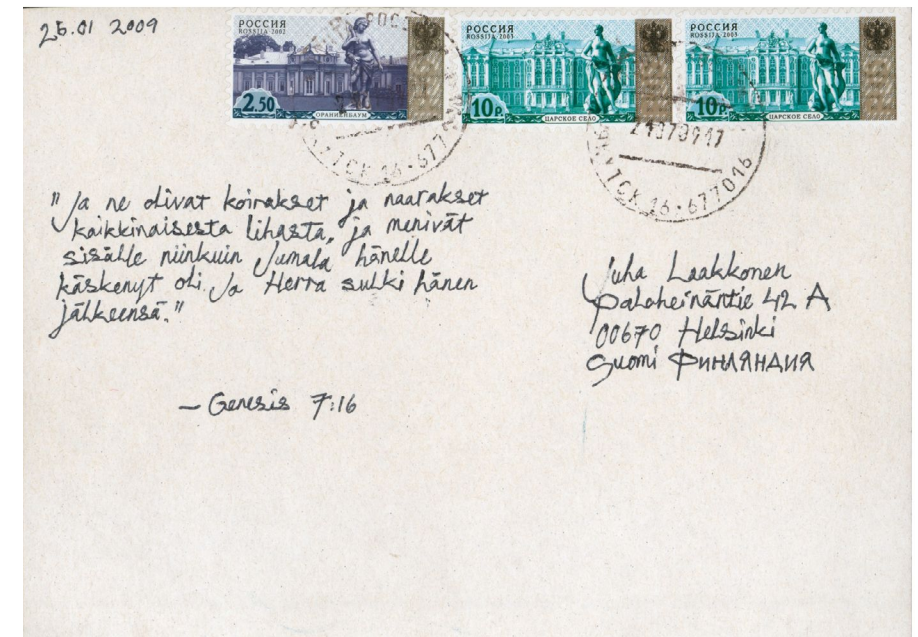 25.01 2009
РОССИЯ
ROSSIJA·2002
2.50
ОРАНИЕНБАУМ
РОССИЯ
ROSSIJA·2003
10р.
ЦАРСКОЕ СЕЛО
РОССИЯ
ROSSIJA·2003
10р.
ЦАРСКОЕ СЕЛО
ТСК 16·677
ТСК 16·677016
"Ja ne olivat koirakset ja naarakset
kaikkinaisesta lihasta, ja menivät
sisälle niinkuin Jumala hänelle
käskenyt oli. Ja Herra sulki hänen
jälkeensä."
— Genesis 7:16
Juha Laakkonen
Paloheinäntie 42 A
00670 Helsinki
Suomi ФИНЛЯНДИЯ